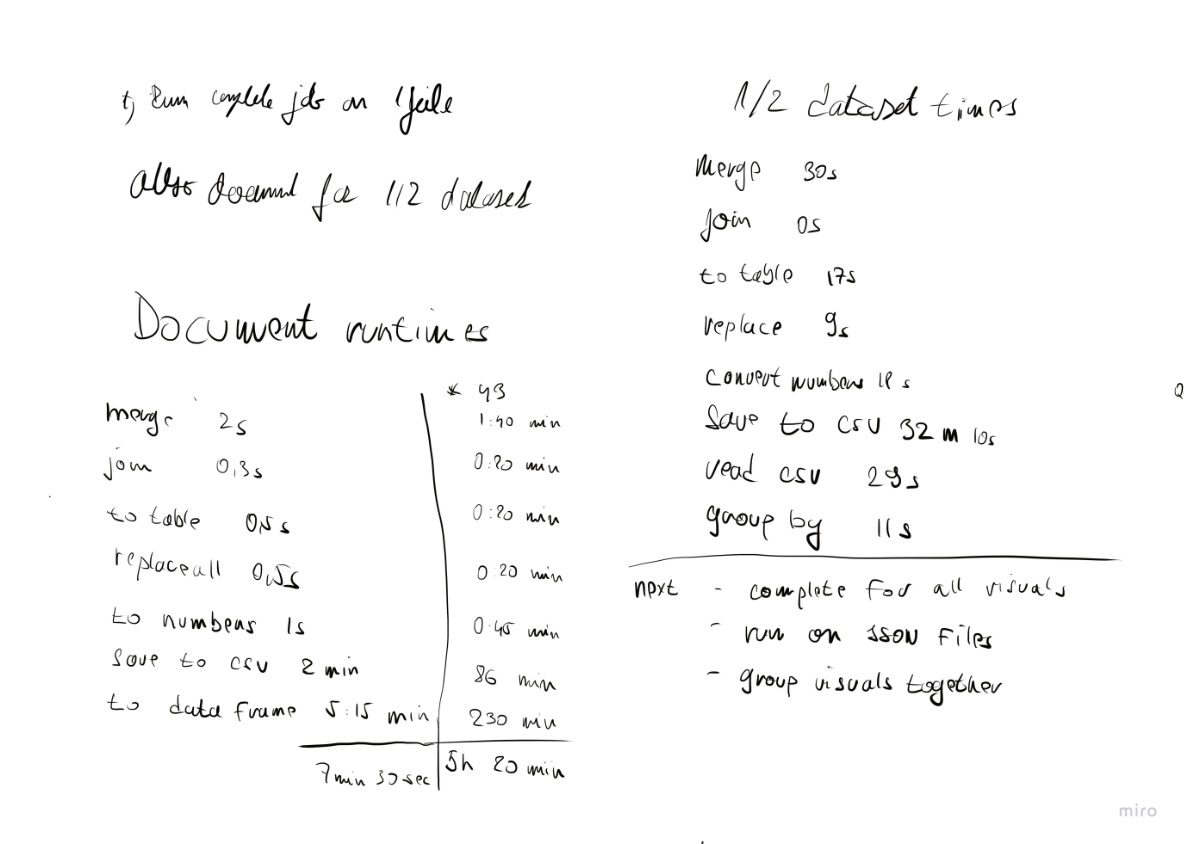 Run complete job on 1 file
also document for 1/2 dataset
Document runtimes
* 43
merge 2s 1:40 min
join 0,3s 0:20 min
to table 0,5s 0:20 min
replace all 0,5s 0:20 min
to numbers 1s 0:45 min
save to csv 2 min 86 min
to data frame 5:15 min 230 min
7 min 30 sec 5h 20 min
1/2 dataset times
merge 30s
join 0s
to table 17s
replace 9s
convert numbers s
save to csv 32 m 10s
read csv 29s
group by 11s
next - complete for all visuals
- run on JSON Files
- group visuals together
miro